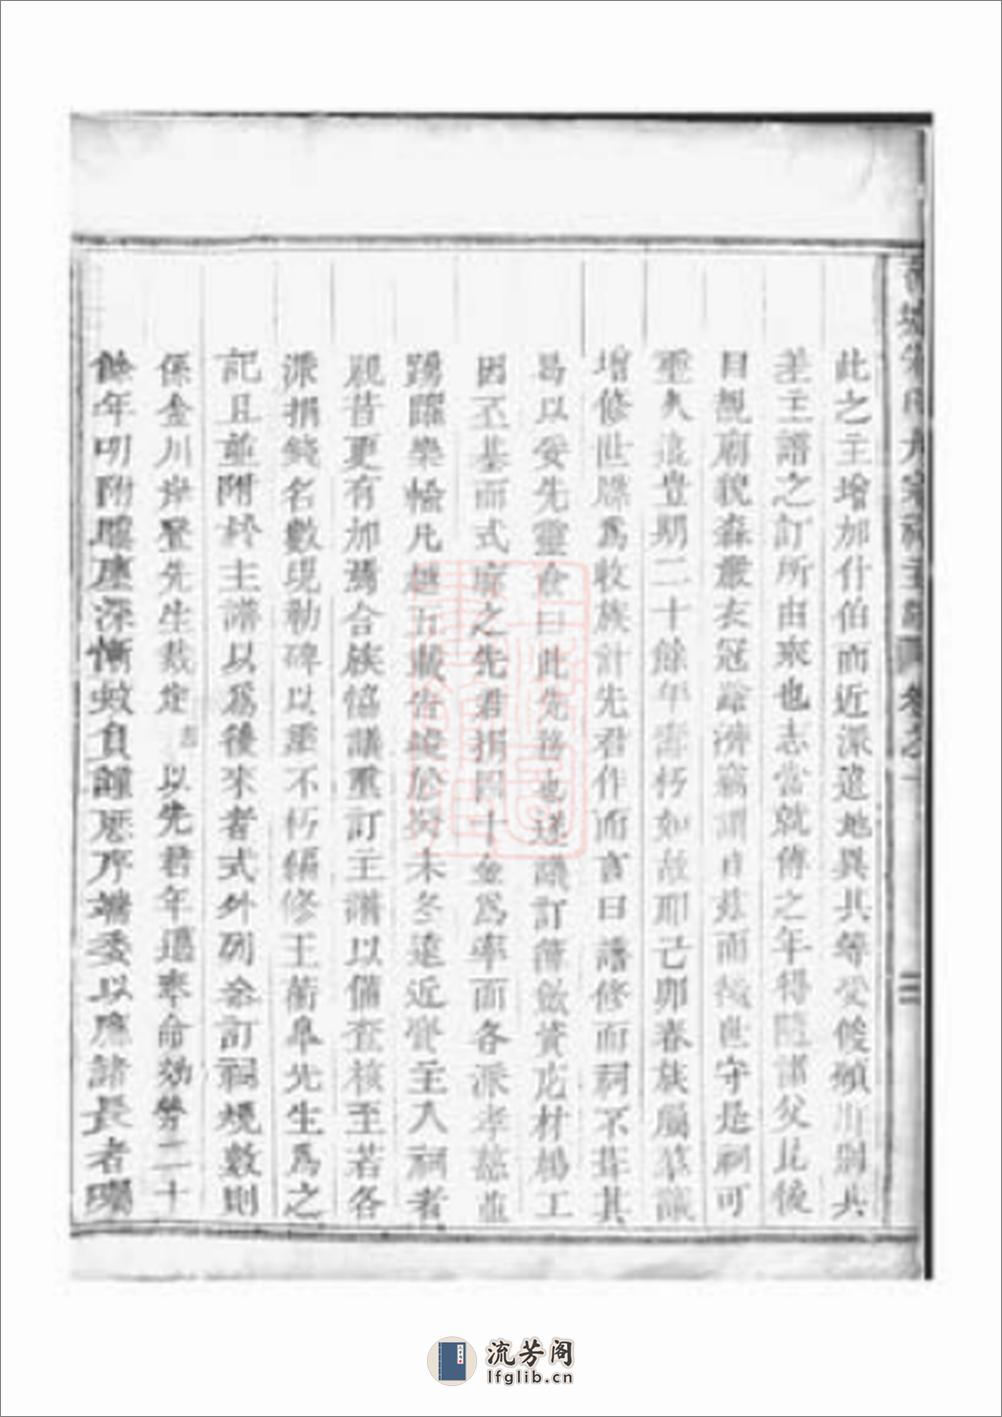 此之主增加什伯而近派遠地異其等受餕頒川別共
差主譜之訂所由來也志當就傅之年得隨諸父比後
目覩廟貌森嚴衣冠蹌濟竊謂自茲而後世守是祠可
垂久遠豈期二十餘年蠹朽如故耶己卯春族屬羣議
增修世牒爲收族計先君作而言曰譜修而祠不葺其
曷以妥先靈僉曰此先務也遂議訂簿斂資庀材鳩工
因丕基而式廓之先君捐四十金爲率而各派孝慈並
踴躍樂輸凡越五載告竣於癸未冬遠近賫主入祠者
視昔更有加焉合族協議重訂主譜以備查核至若各
派捐錢名數現勒碑以垂不朽編修王蘅皋先生爲之
記且並附於主譜以爲後來者式外列合訂祠規數則
係金川岸登先生裁定志以先君年邁奉命効勞二十
餘年叨附驥塵深慚蚊負謹歷序端委以應諸長者囑
卷之一
二
流芳阁
lfglib.cn